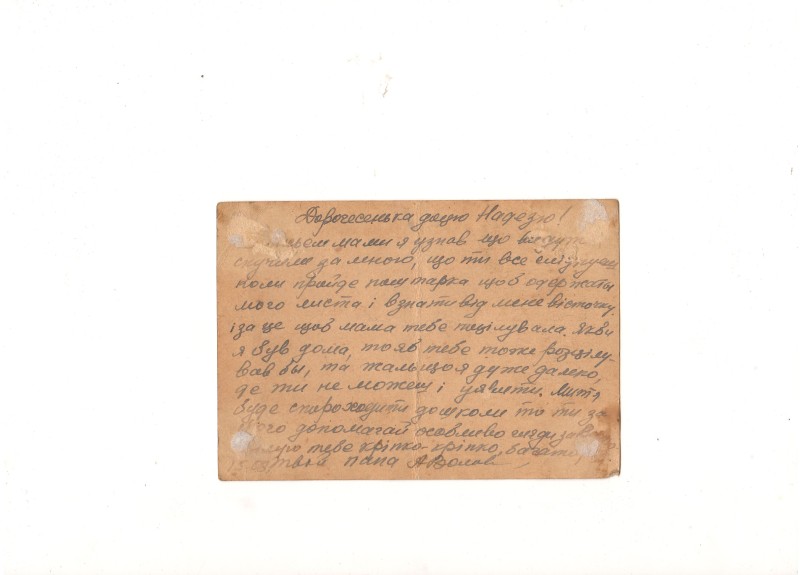 Дорогесенька доцю Надезю!
мами я узнав що ви дуже
скучили за мною, що ти все
коли прайде поштарка щоб одержати
мого листа і взнати від мене вісточку
і за це щоб мама тебе поцілувала. Якби
я був дома, то я б тебе тоже розцілу-
вав бы, та жаль що я дуже далеко,
де ти не можеш і уявити. Митя
буде старо ходити до школи то ти за
його допомагай особливо гляди за
тебе кріпко-кріпко, багато,
твій папа А Волов